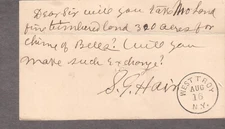 Dear Sir will you take Mo Land
pine timbered land 320 acres for
chime of Bells? will you
make such Exchange?
S. G. Hain
WEST TROY
AUG
15
N.Y.